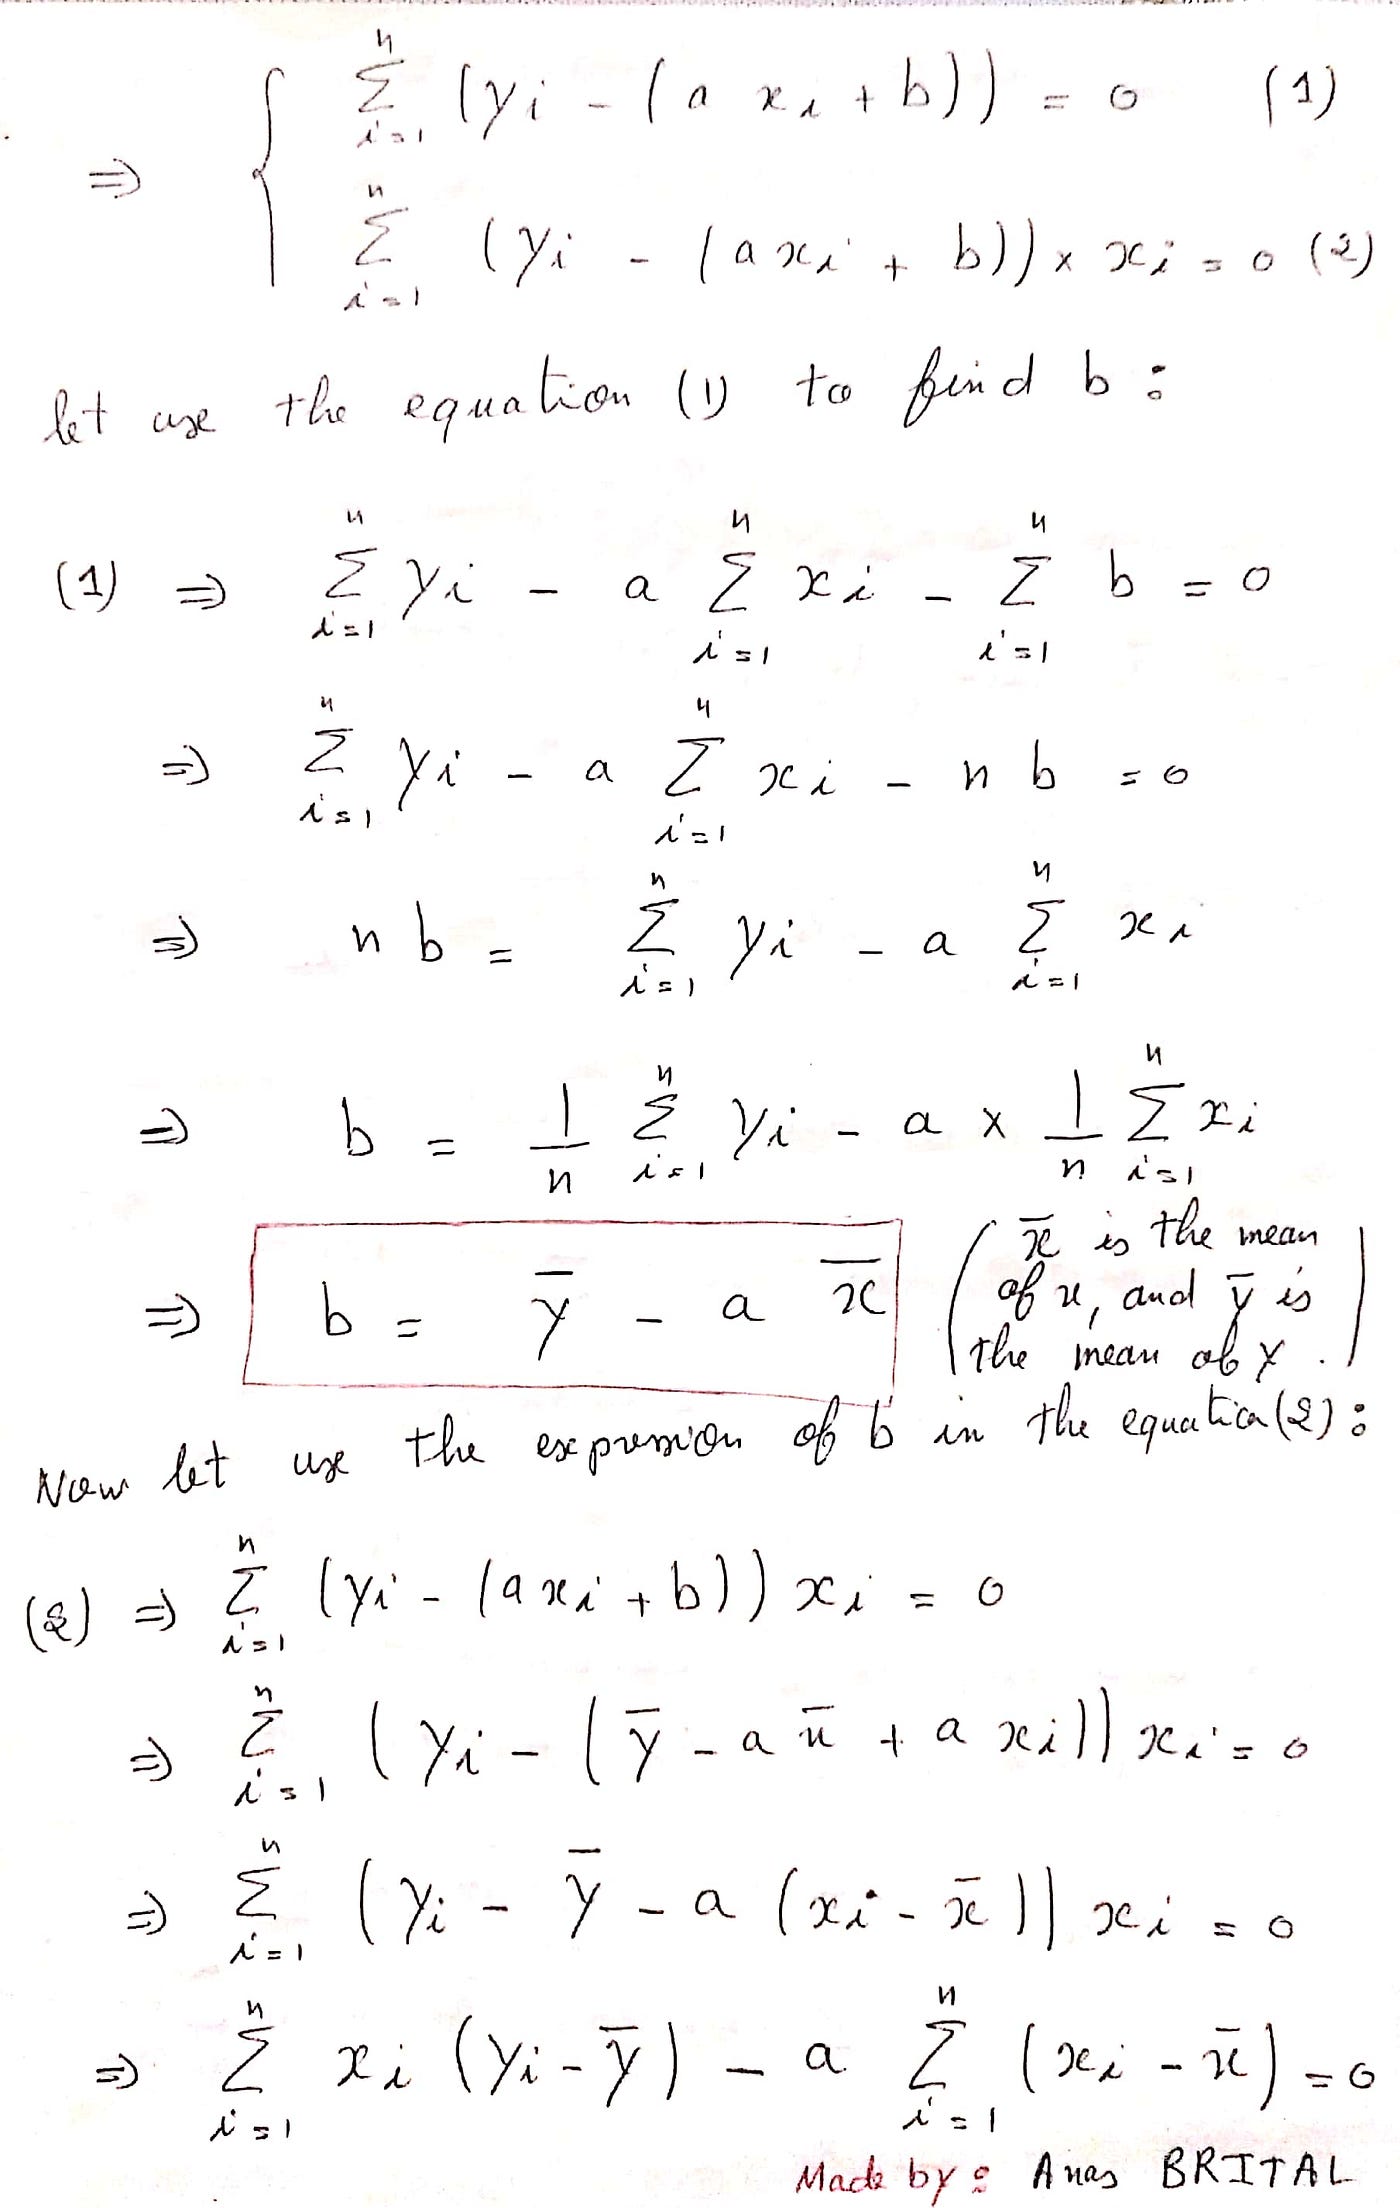 ⇒ { ∑_{i=1}^{n} (yi - (a xi + b)) = 0 (1)
∑_{i=1}^{n} (yi - (a xi + b)) × xi = 0 (2)
let use the equation (1) to find b :
(1) ⇒ ∑_{i=1}^{n} yi - a ∑_{i=1}^{n} xi - ∑_{i=1}^{n} b = 0
⇒ ∑_{i=1}^{n} yi - a ∑_{i=1}^{n} xi - n b = 0
⇒ n b = ∑_{i=1}^{n} yi - a ∑_{i=1}^{n} xi
⇒ b = 1/n ∑_{i=1}^{n} yi - a × 1/n ∑_{i=1}^{n} xi
⇒ b = ȳ - a x̄
( x̄ is the mean
of x, and ȳ is
the mean of y . )
Now let use the expression of b in the equation (2) :
(2) ⇒ ∑_{i=1}^{n} (yi - (a xi + b)) xi = 0
⇒ ∑_{i=1}^{n} (yi - (ȳ - a x̄ + a xi)) xi = 0
⇒ ∑_{i=1}^{n} (yi - ȳ - a (xi - x̄)) xi = 0
⇒ ∑_{i=1}^{n} xi (yi - ȳ) - a ∑_{i=1}^{n} (xi - x̄) = 0
Made by : Anas BRITAL